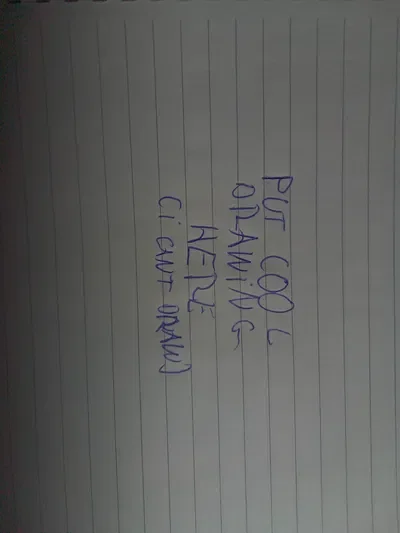 PUT COOL
DRAWING
HERE
(i cant DRAW)